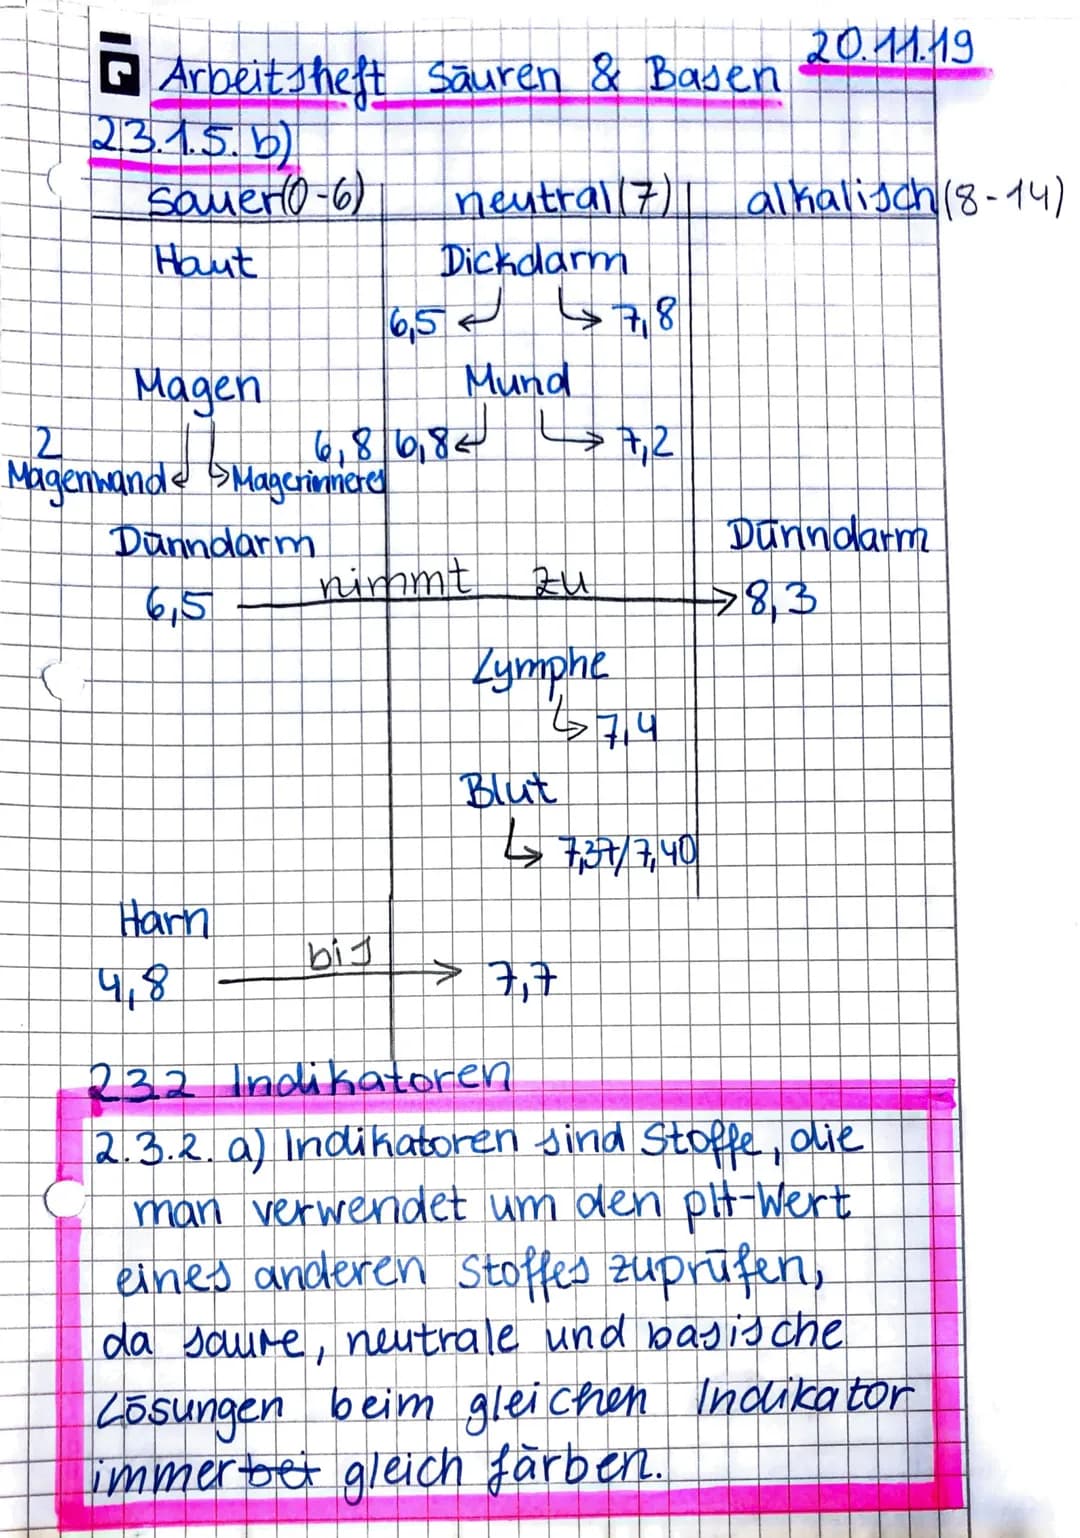 Arbeitsheft Säuren & Basen 20.11.19
2.3.1.5. b)
sauer(0-6) neutral(7) alkalisch(8-14)
Haut Dickdarm
6,5 ↲ ↳ 7,8
Magen Mund
2 6,8 6,8 ↲ ↳ 7,2
Magenwand ↲ ↳ Mageninneres
Dünndarm Dünndarm
nimmt zu
6,5 → 8,3
Lymphe
↳ 7,4
Blut
↳ 7,37/7,40
Harn
bis
4,8 → 7,7
2.3.2 Indikatoren
2.3.2. a) Indikatoren sind Stoffe, die
man verwendet um den pH-Wert
eines anderen Stoffes zuprüfen,
da saure, neutrale und basische
Lösungen beim gleichen Indikator
immer bei gleich färben.